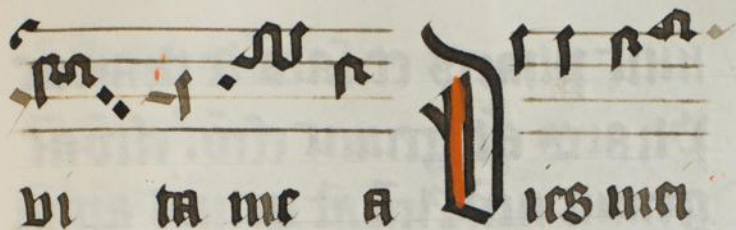 vi ta me a Dies mei